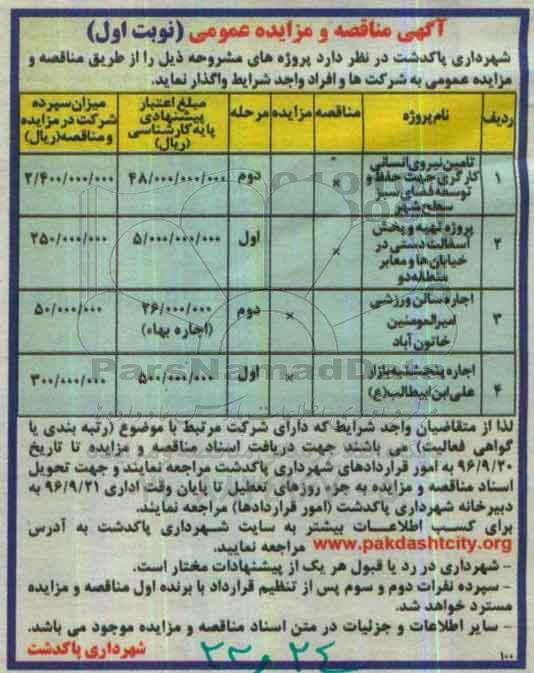 آگهی مناقصه و مزایده عمومی (نوبت اول)
شهرداری پاکدشت در نظر دارد پروژه های مشروحه ذیل را از طریق مناقصه و
مزایده عمومی به شرکت ها و افراد واجد شرایط واگذار نماید.
ردیف نام پروژه مناقصه مزایده مرحله مبلغ اعتبار پیشنهادی پایه کارشناسی (ریال) میزان سپرده شرکت در مزایده و مناقصه (ریال)
۱ تامین نیروی انسانی کارگری جهت حفظ و توسعه فضای سبز سطح شهر × دوم ۴۸/۰۰۰/۰۰۰/۰۰۰ ۲/۴۰۰/۰۰۰/۰۰۰
۲ پروژه تهیه و پخش آسفالت دستی در خیابان ها و معابر منطقه دو × اول ۵/۰۰۰/۰۰۰/۰۰۰ ۲۵۰/۰۰۰/۰۰۰
۳ اجاره سالن ورزشی امیرالمومنین خاتون آباد × دوم ۲۶/۰۰۰/۰۰۰ (اجاره بهاء) ۵۰/۰۰۰/۰۰۰
۴ اجاره پنجشنبه بازار علی ابن ابیطالب (ع) × اول ۵۰۰/۰۰۰/۰۰۰ ۳۰۰/۰۰۰/۰۰۰
ParsNamadData
لذا از متقاضیان واجد شرایط که دارای شرکت مرتبط با موضوع (رتبه بندی یا
گواهی فعالیت) می باشند جهت دریافت اسناد مناقصه و مزایده تا تاریخ
۹۶/۹/۲۰ به امور قراردادهای شهرداری پاکدشت مراجعه نمایند و جهت تحویل
اسناد مناقصه و مزایده به جزء روزهای تعطیل تا پایان وقت اداری ۹۶/۹/۲۱ به
دبیرخانه شهرداری پاکدشت (امور قراردادها) مراجعه نمایند.
برای کسب اطلاعات بیشتر به سایت شهرداری پاکدشت به آدرس
www.pakdashtcity.org مراجعه نمایید.
- شهرداری در رد یا قبول هر یک از پیشنهادات مختار است.
- سپرده نفرات دوم و سوم پس از تنظیم قرارداد با برنده اول مناقصه و مزایده
مسترد خواهد شد.
- سایر اطلاعات و جزئیات در متن اسناد مناقصه و مزایده موجود می باشد.
۱۰۰ شهرداری پاکدشت